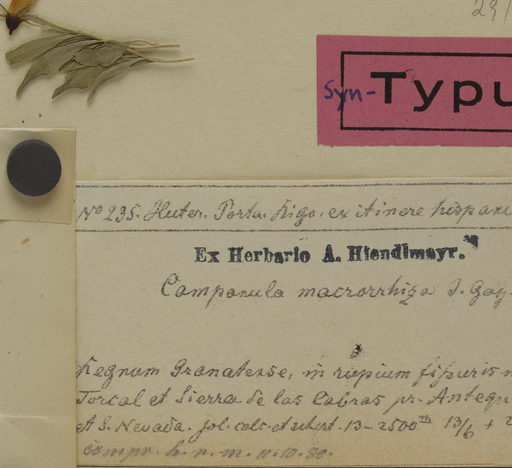 29/
Syn-Typu
No 235. Huter. Porta. Rigo. ex itinere hispani
Ex Herbario A. Hiendlmayr.
Campanula macrorrhiza J. Gay
Regnum Granatense, in rupium fissuris
Torcal et Sierra de las Cabras pr. Antequ
et S. Nevada. sol. calc. et schist. 13-2500 m 13/6 +
compr. h. r. m. 11.10.80.